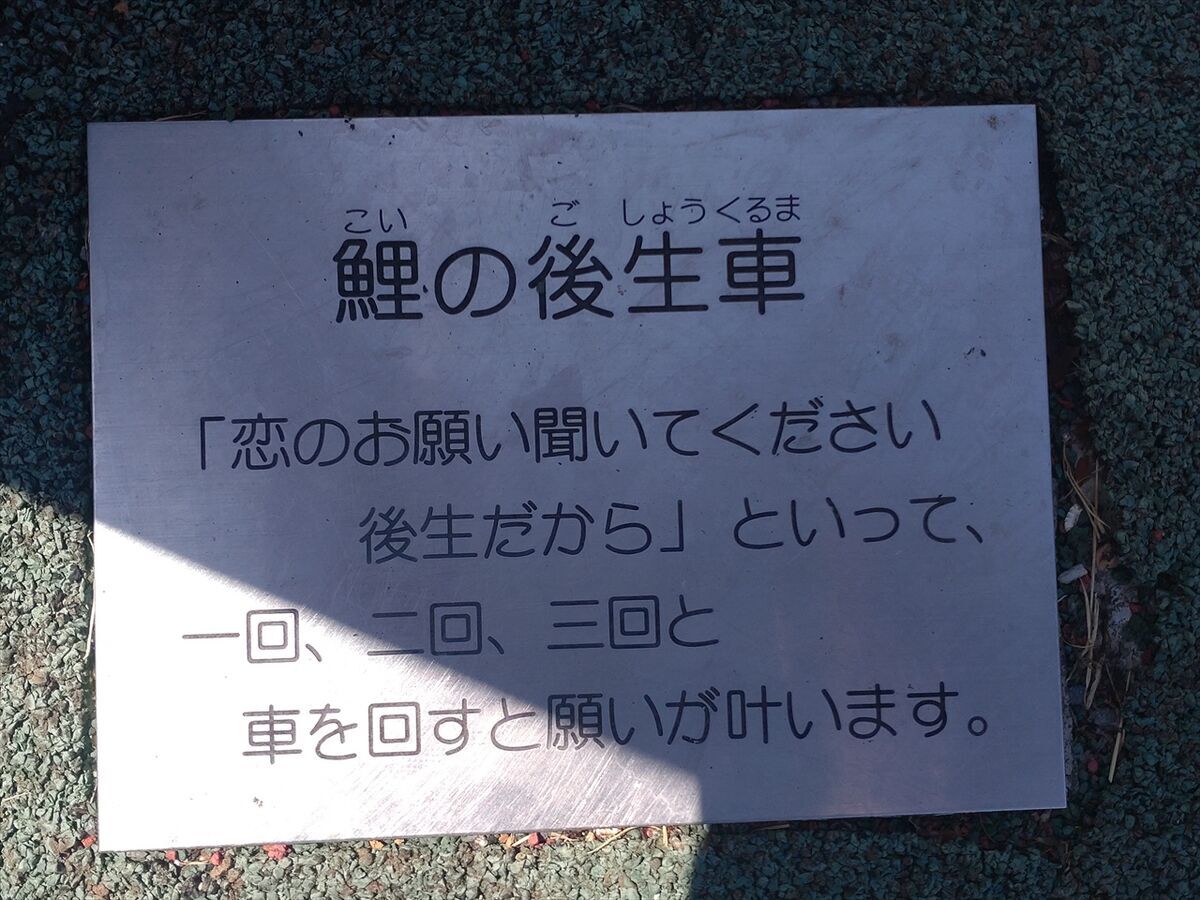 こい ご しょうくるま
鯉の後生車
「恋のお願い聞いてください
後生だから」といって、
一回、二回、三回と
車を回すと願いが叶います。